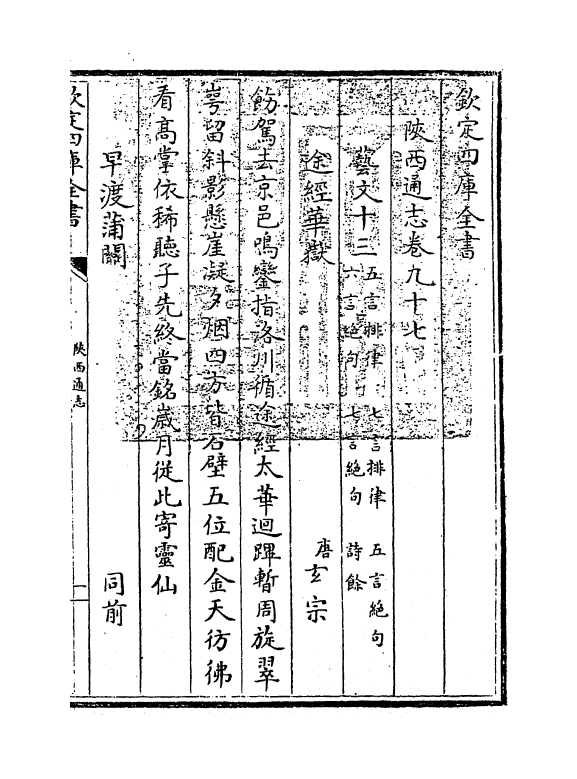 欽定四庫全書
陜西通志卷九十七
藝文十三 五言排律 七言排律 五言絶句
六言絶句 七言絶句 詩餘
途經華嶽 唐玄宗
飭駕去京邑鳴鑾指洛川循途經太華迴蹕暫周旋翠
崿留斜影懸崖凝夕烟四方皆石壁五位配金天彷彿
看髙掌依稀聽子先終當銘嵗月從此寄靈仙
早渡蒲闗 同前
欽定四庫全書
陜西通志
一